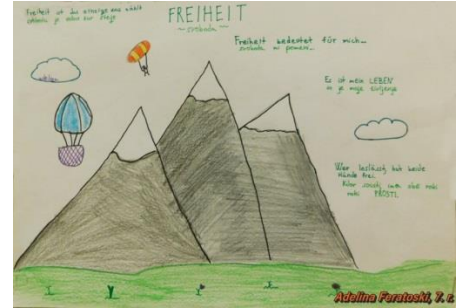 Freiheit ist das einzige was zählt
FREIHEIT
~ svoboda ~
Freiheit bedeutet für mich...
svoboda mi pomeni...
Es ist mein LEBEN
in je moje življenje
Wer loslässt, hat beide
Hände frei.
Adelina Feratoski, 7. r.